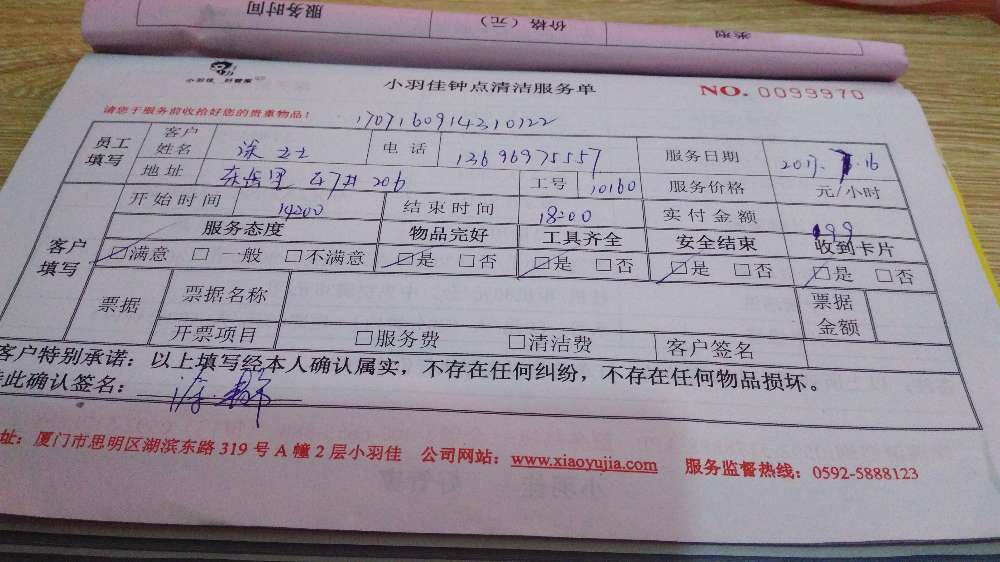 服务时间 价格（元） 类型
小羽佳 好管家
小羽佳钟点清洁服务单
NO. 0099970
请您于服务前收拾好您的贵重物品！
1707160914310122
员工填写 客户姓名 涂女士 电话 13696975557 服务日期 2017.7.16
地址 7#206 工号 10160 服务价格 元/小时
客户填写 开始时间 14:00 结束时间 18:00 实付金额 199
服务态度 物品完好 工具齐全 安全结束 收到卡片
☑满意 □一般 □不满意 ☑是 □否 ☑是 □否 ☑是 □否 ☑是 □否
票据 票据名称 票据金额
开票项目 □服务费 □清洁费 客户签名
客户特别承诺：以上填写经本人确认属实，不存在任何纠纷，不存在任何物品损坏。
此确认签名：涂
址：厦门市思明区湖滨东路 319 号 A 幢 2 层小羽佳 公司网站：www.xiaoyujia.com 服务监督热线：0592-5888123